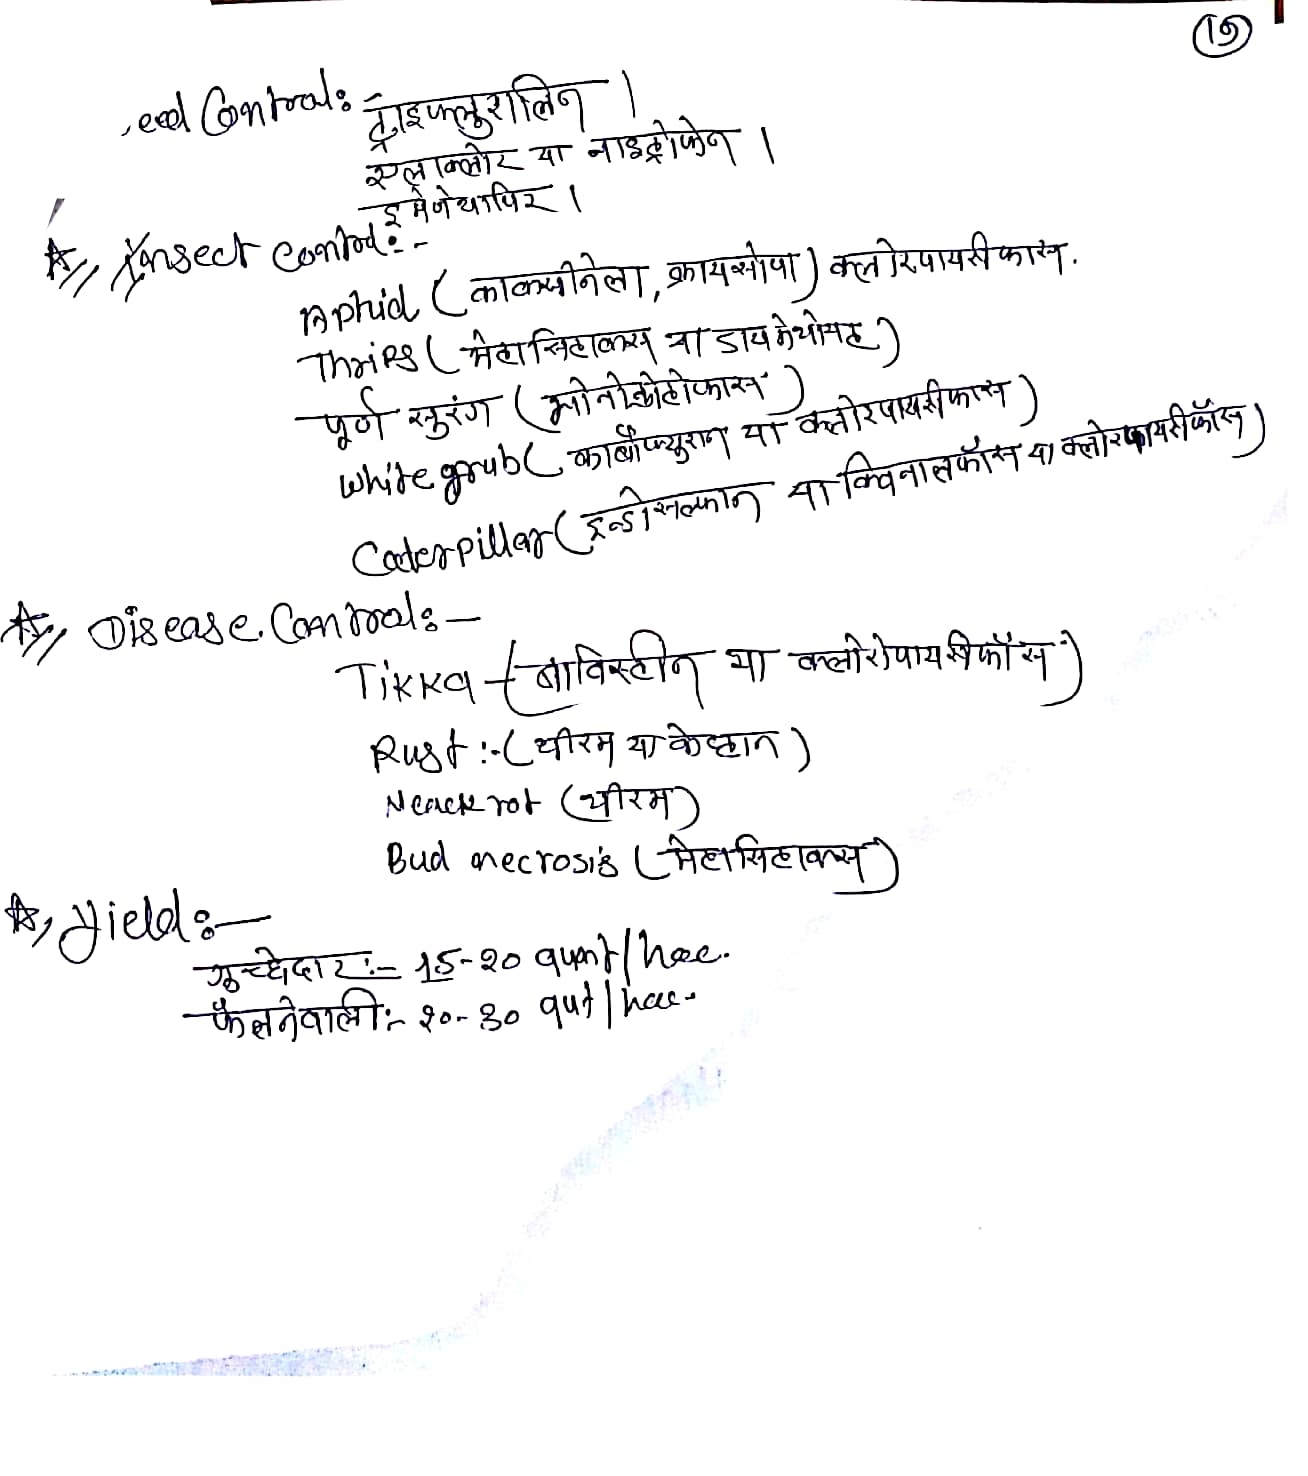 19
eed Control:
ट्राइफ्लुरालिन ।
एलाक्लोर या नाइट्रोफेन ।
इमेजेथापिर ।
Insect control:-
Aphid (काक्सीनेला, क्रायसोपा) क्लोरपायरीफास.
Thrips (मेटासिटाक्स या डायमेथोयट)
पूर्ण सुरंग (मोनोक्रोटोफास)
white grub (कार्बोफ्युरान या क्लोरपायरीफास)
Caterpillar (इन्डोसल्फान या क्विनालफॉस या क्लोरपायरीफॉस)
Disease. Control:-
Tikka - (बाविस्टीन या क्लोरोपायरीफॉस)
Rust :- (थीरम या केप्टान)
Neack rot (थीरम)
Bud necrosis (मेटासिटाक्स)
Yield:-
गुच्छेदार :- 15-20 qunt/hec.
फैलनेवाली:- 20-30 qut/hec.